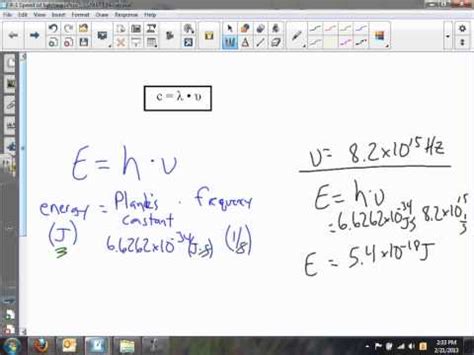 File Edit View Insert Format Tools Add-ons Help
c = λ • υ
E = h · υ
energy = Plank's constant · frequency
(J) 6.6262x10^-34 (J·s) (1/s)
υ = 8.2x10^15 Hz
E = h·υ
= 6.6262x10^-34 Js 8.2x10^15 1/s
E = 5.4x10^-18 J
2:33 PM
2/21/2013